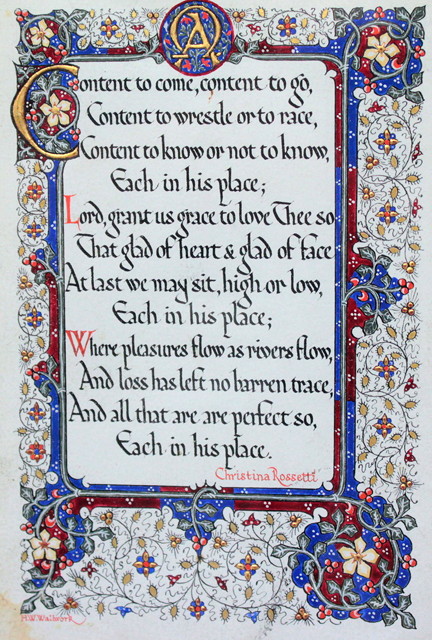 Content to come, content to go,
Content to wrestle or to race,
Content to know or not to know,
Each in his place;
Lord, grant us grace to love Thee so
That glad of heart & glad of face
At last we may sit, high or low,
Each in his place;
Where pleasures flow as rivers flow,
And loss has left no barren trace,
And all that are are perfect so,
Each in his place.
Christina Rossetti